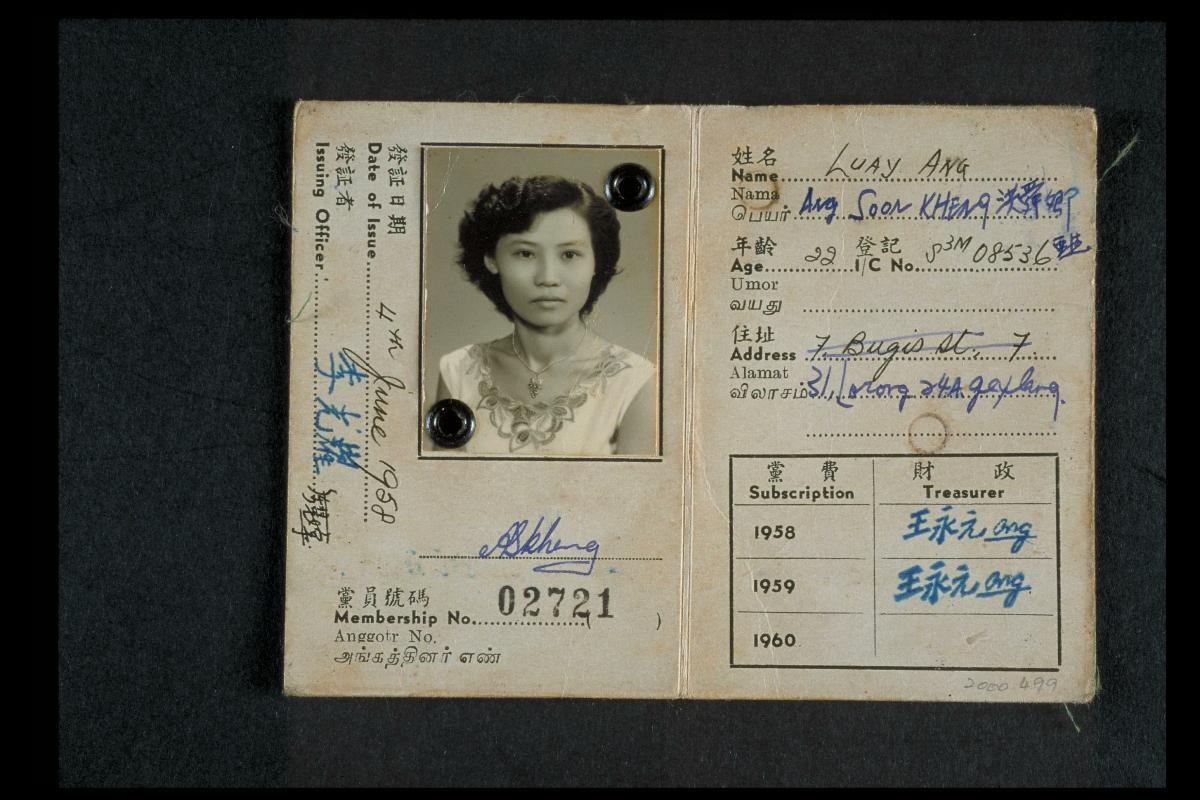 發証日期
Date of Issue 4th June 1958
發証者
Issuing Officer 李光耀
ASKheng
黨員號碼
Membership No. 02721 ( )
Anggotr No.
அங்கத்தினர் எண்
姓名
Name LUAY ANG
Nama
பெயர் Ang Soon KHENG 洪
年齡 登記
Age 22 I/C No. S3M 08536
Umor
வயது
住址
Address 7, Bugis St, 7
Alamat
விலாசம் 31, Lorong 24A Geylang.
黨費 財政
Subscription Treasurer
1958 王永元 ang
1959 王永元 ang
1960
2000.499